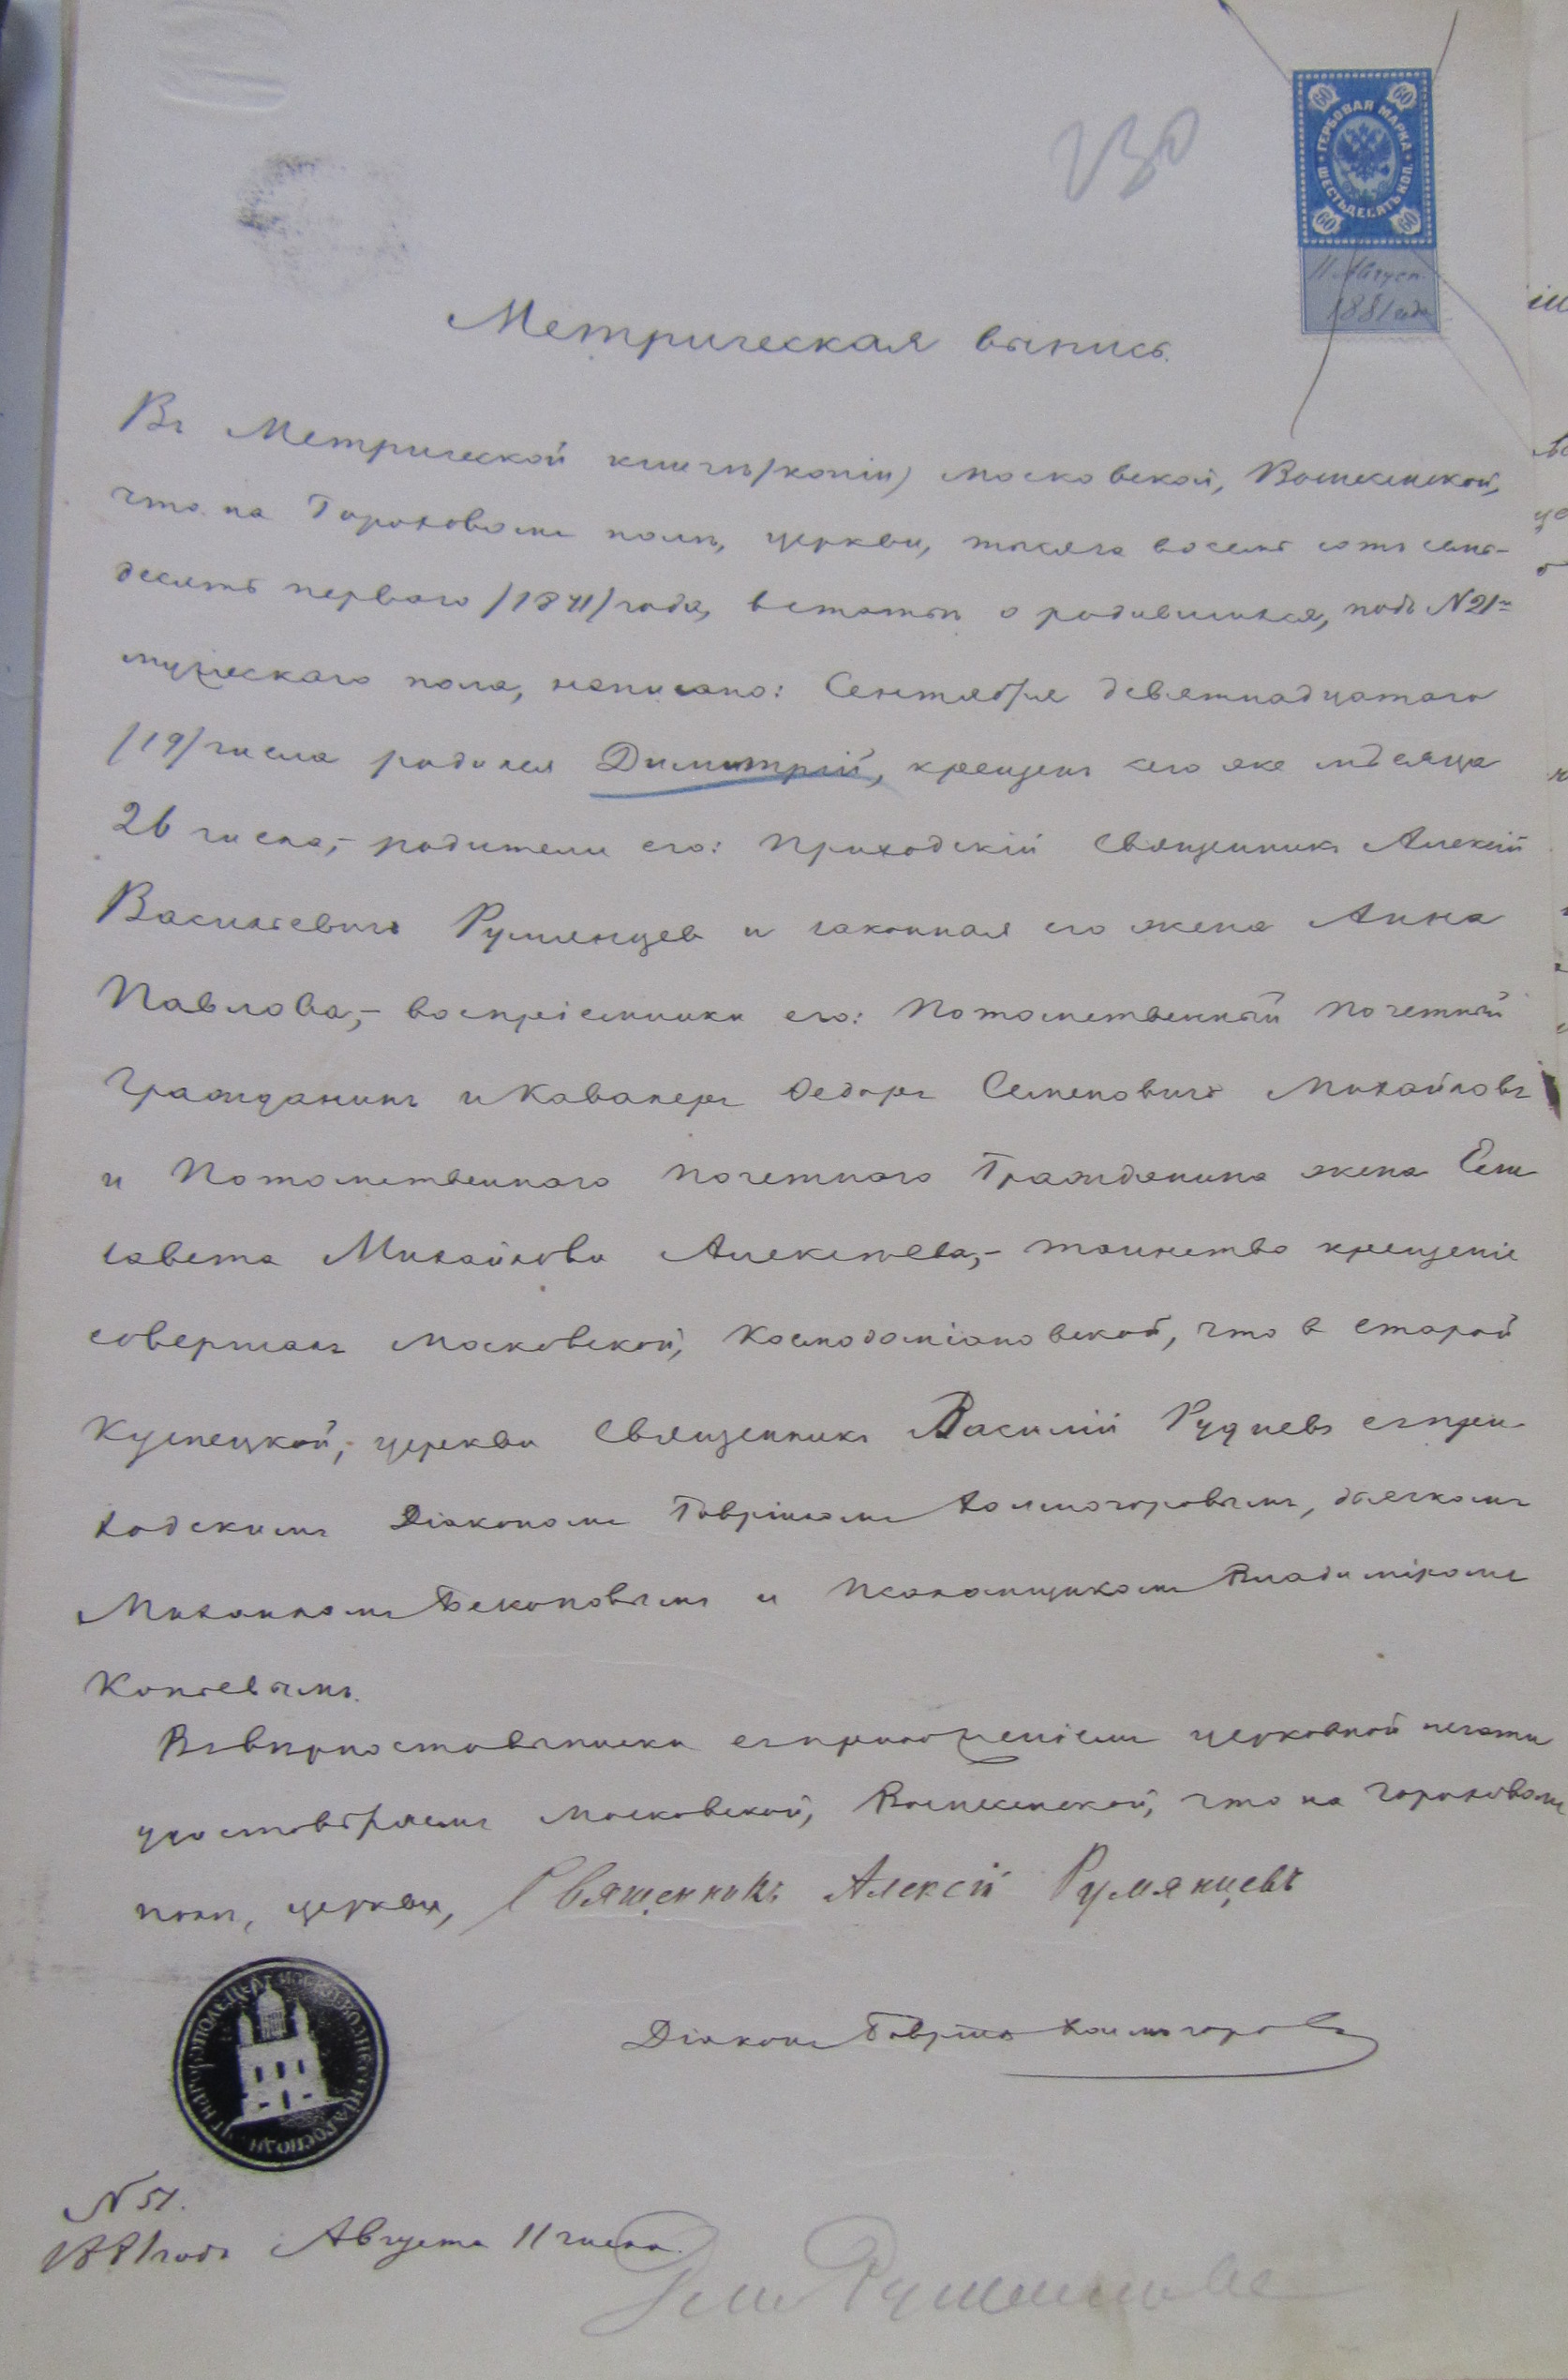 230
60 60
ГЕРБОВАЯ МАРКА
ШЕСТЬДЕСЯТЪ КОП.
60 60
11 Август.
1881 года
Метрическая выпись.
Въ Метрической книгѣ /копіи/ московской, Вознесенской,
что на Гороховомъ полѣ, церкви, тысяча восемь сотъ семь-
десятъ перваго /1871/ года, въ статьѣ о родившихся, подъ № 21мъ
мужескаго пола, написано: Сентября девятнадцатаго
/19/ числа родился Димитрій, крещенъ сего же мѣсяца
26 числа,- родители его: приходскій священникъ Алексій
Васильевичъ Румянцев и законная его жена Анна
Павлова,- воспріемники его: Потомственный Почетный
Гражданинъ и Кавалеръ Ѳедоръ Семеновичъ Михайловъ
и Потомственнаго Почетнаго Гражданина жена Ели
савета Михайлова Алексѣева,- таинство крещенiе
совершалъ Московской, Космодаміановской, что в старой
Кузнецкой, церкви Священникъ Василій Рудневъ съ при-
ходскимъ Діакономъ Гавріиломъ Холмогоровымъ, дьячкомъ
Михаиломъ Беконовымъ и Псаломщикомъ Владиміромъ
Копьевымъ.
Въ вѣрности выписки съ приложеніемъ церковной печати
удостовѣряемъ Московской, Вознесенской, что на Гороховомъ
полѣ, церкви, Священникъ Алексій Румянцевъ
Діаконъ Гавріилъ Холмогоровъ
№ 51.
1881 годъ Августа 11 числа.